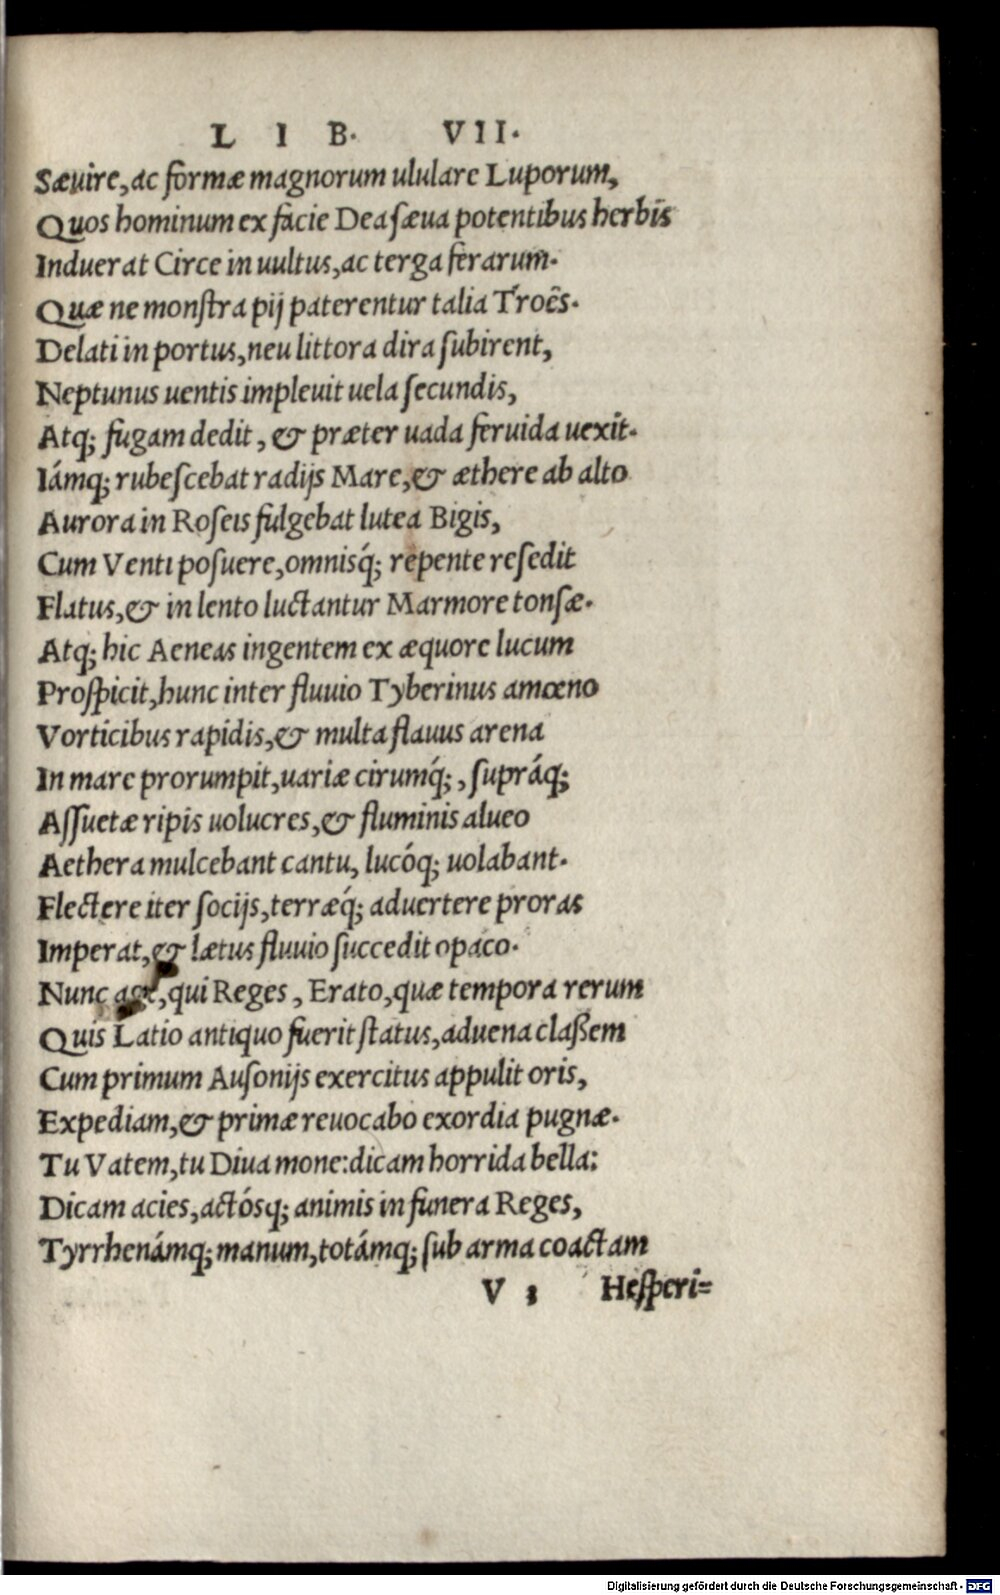 L I B. VII.
Sæuire, ac formæ magnorum ululare Luporum,
Quos hominum ex facie Dea sæua potentibus herbis
Induerat Circe in uultus, ac terga ferarum.
Quæ ne monstra pij paterentur talia Troës.
Delati in portus, neu littora dira subirent,
Neptunus uentis impleuit uela secundis,
Atq; fugam dedit, & præter uada feruida uexit.
Iámq; rubescebat radijs Mare, & æthere ab alto
Aurora in Roseis fulgebat lutea Bigis,
Cum Venti posuere, omnisq́; repente resedit
Flatus, & in lento luctantur Marmore tonsæ.
Atq; hic Aeneas ingentem ex æquore lucum
Prospicit, hunc inter fluuio Tyberinus amœno
Vorticibus rapidis, & multa flauus arena
In mare prorumpit, uariæ cirumq́;, supráq;
Assuetæ ripis uolucres, & fluminis alueo
Aethera mulcebant cantu, lucóq; uolabant.
Flectere iter socijs, terræq́; aduertere proras
Imperat, & lætus fluuio succedit opaco.
Nunc age, qui Reges, Erato, quæ tempora rerum
Quis Latio antiquo fuerit status, aduena claßem
Cum primum Ausonijs exercitus appulit oris,
Expediam, & primæ reuocabo exordia pugnæ.
Tu Vatem, tu Diua mone: dicam horrida bella:
Dicam acies, actósq; animis in funera Reges,
Tyrrhenámq; manum, totámq; sub arma coactam
V 3 Hesperi=
Digitalisierung gefördert durch die Deutsche Forschungsgemeinschaft - DFG